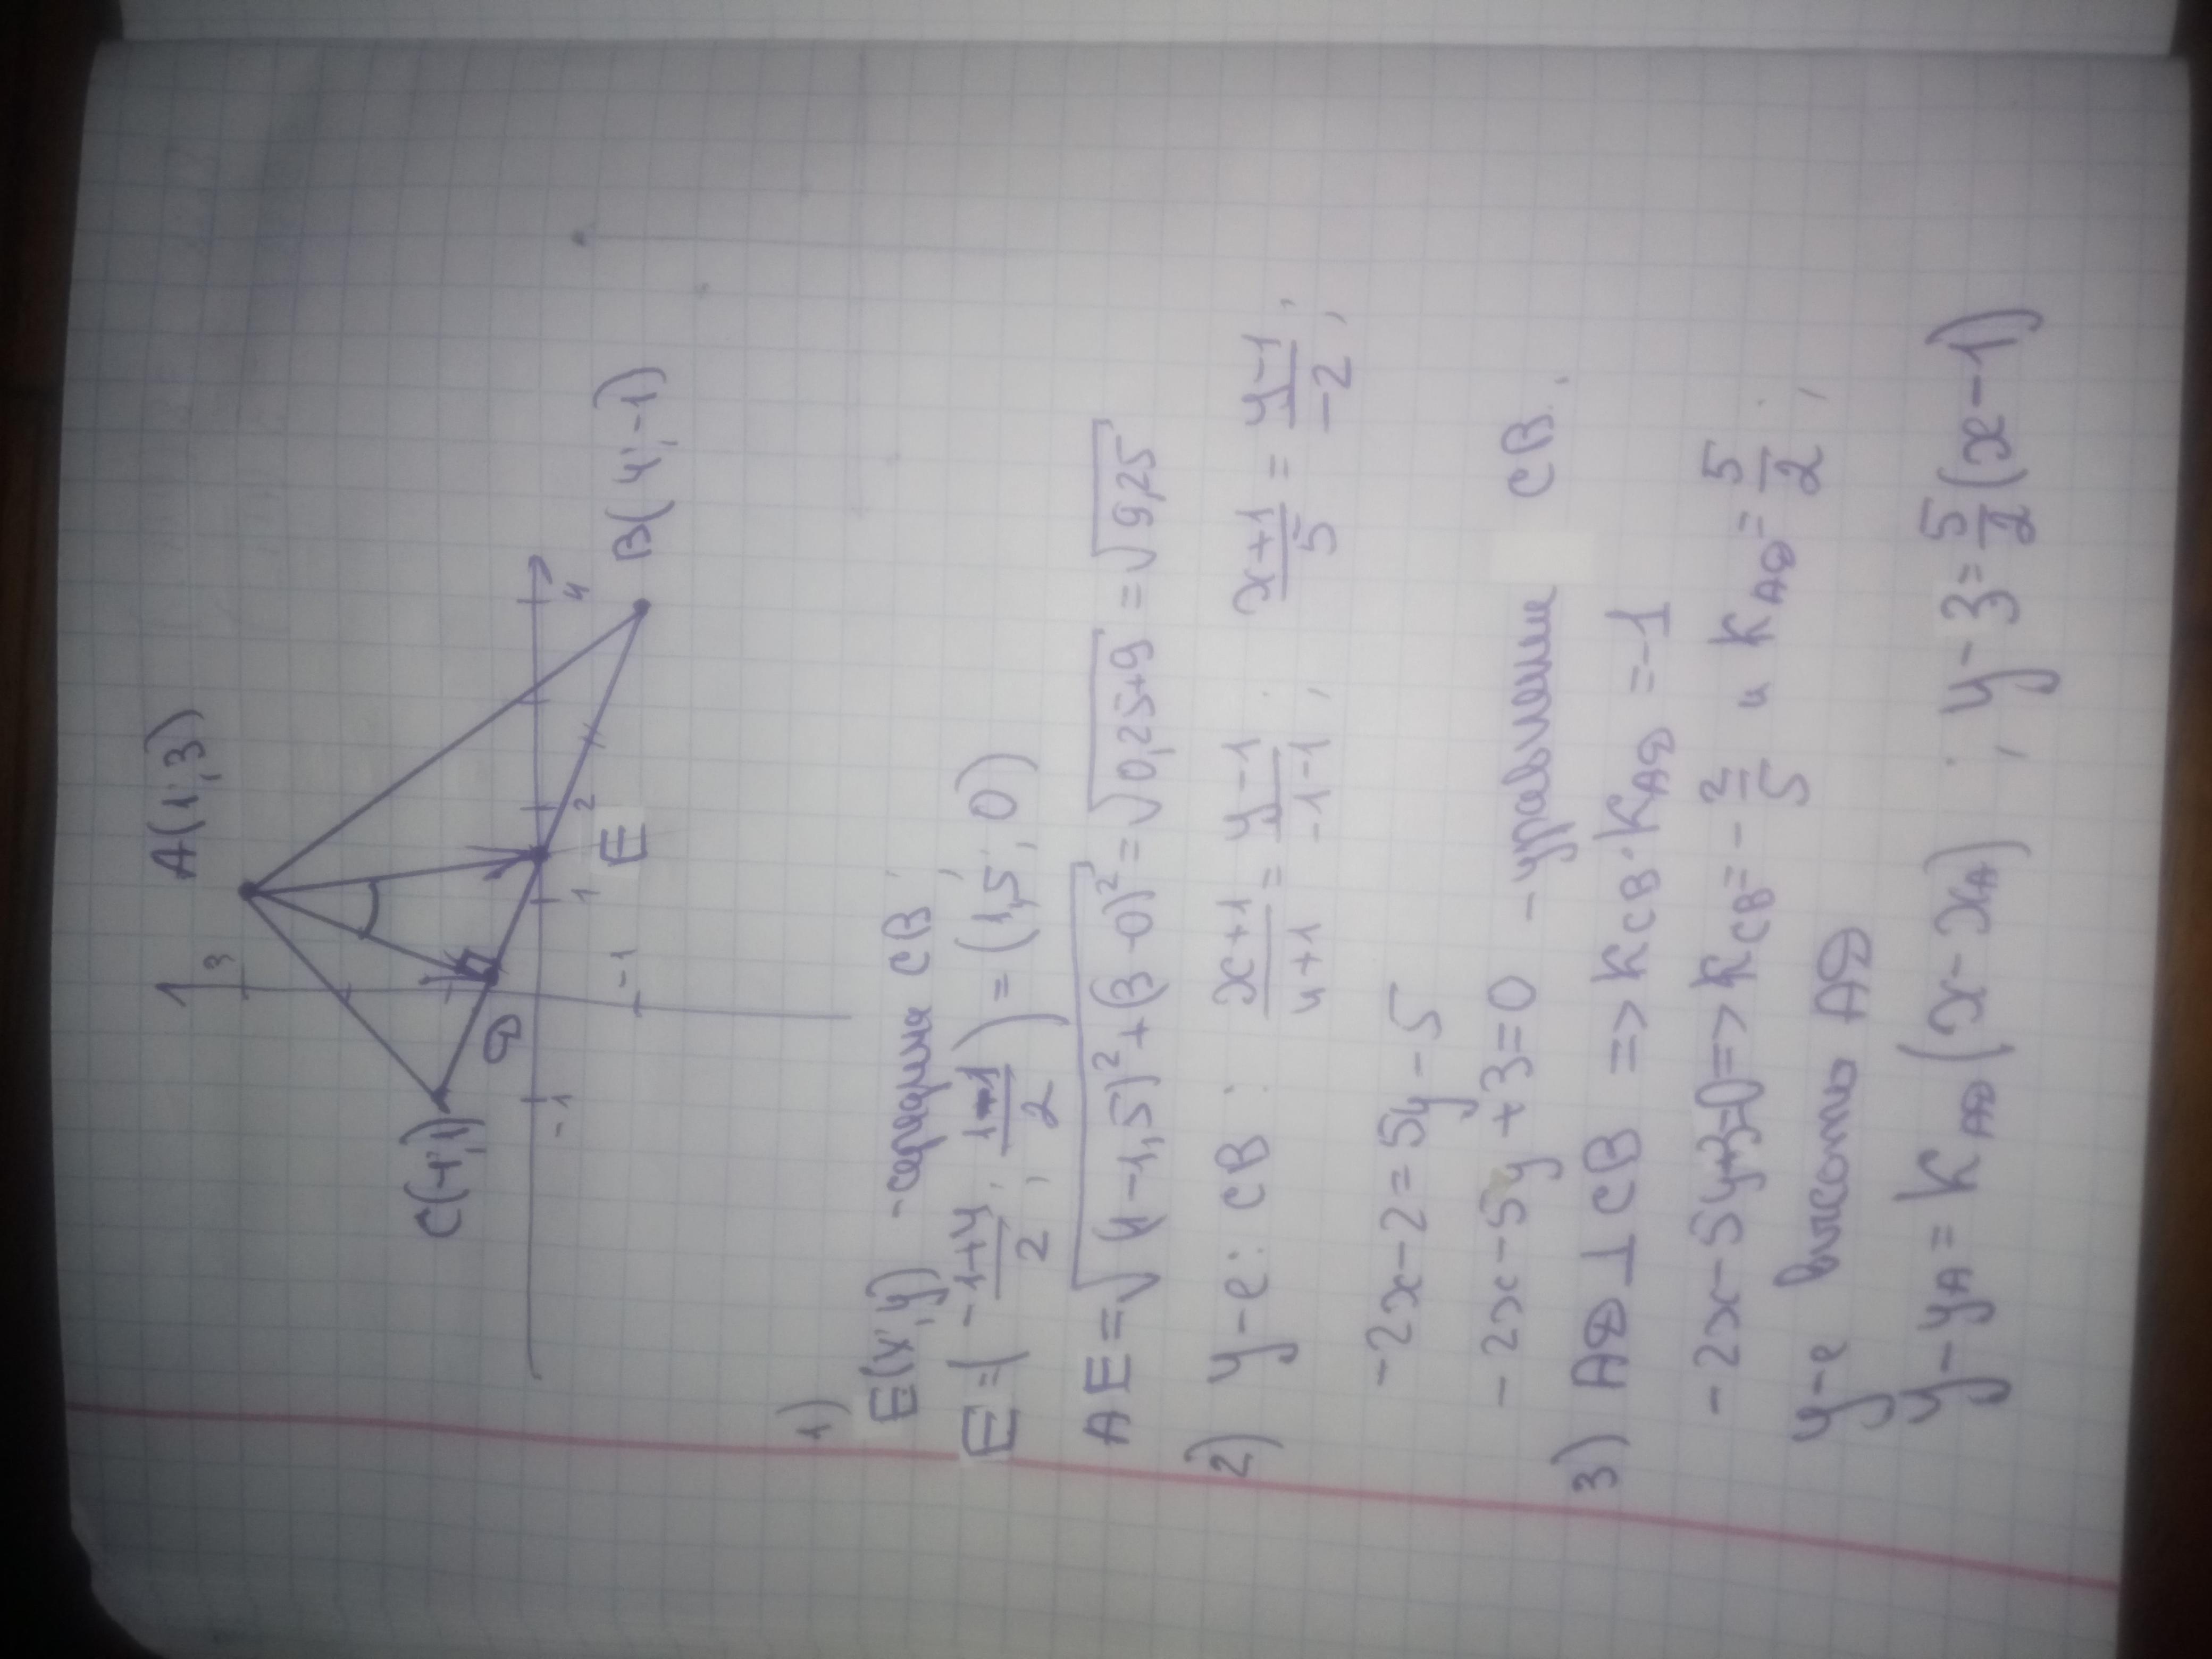 A(1;3)
3
C(-1;1)
D
-1
1
2
4
E
-1
B(4;-1)
1)
E(x;y) - середина CB
E = ( -1+4 / 2 ; 1-1 / 2 ) = (1,5; 0)
AE = √(1-1,5)² + (3-0)² = √0,25+9 = √9,25
2) y-e: CB : x+1 / 4+1 = y-1 / -1-1 ; x+1 / 5 = y-1 / -2 ;
-2x-2 = 5y-5
-2x-5y+3=0 - уравнение CB.
3) AD ⊥ CB => K_CB · K_AD = -1
-2x-5y+3=0 => K_CB = - 2/5 и K_AD = 5/2 ;
y-e высоты AD
y-y_A = K_AD (x-x_A) ; y-3 = 5/2 (x-1)